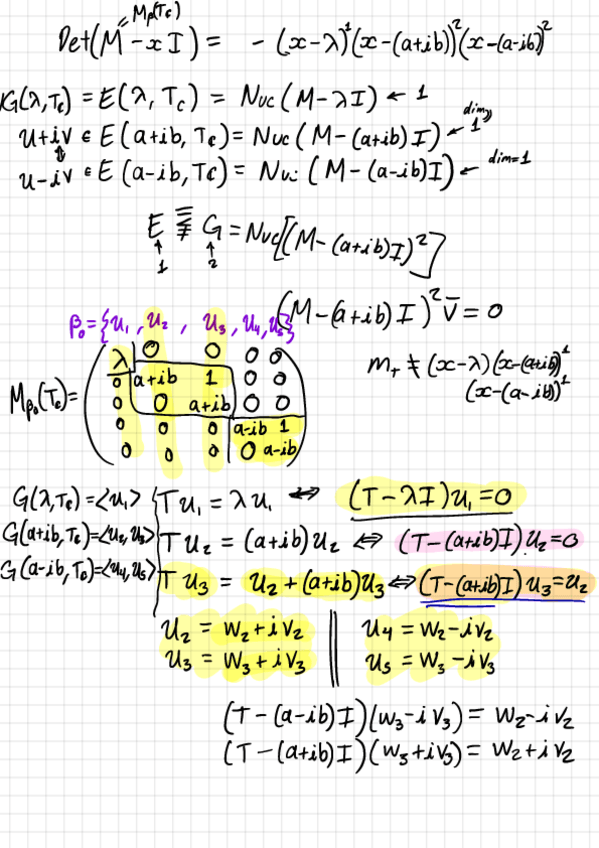 M_β(T_C)
Det(M - xI) = - (x-λ)^1 (x-(a+ib))^2 (x-(a-ib))^2
G(λ,T_C) = E(λ,T_C) = Nuc(M-λI) ← 1
u+iv ∈ E(a+ib, T_C) = Nuc(M-(a+ib)I) ← dim 1
u-iv ∈ E(a-ib, T_C) = Nuc(M-(a-ib)I) ← dim=1
E ≨ G = Nuc[(M-(a+ib)I)^2]
↑ ↑
1 2
β_0 = {u_1, u_2, u_3, u_4, u_5}
(M-(a+ib)I)^2 v̄ = 0
m_T ≠ (x-λ)(x-(a+ib))^1
(x-(a-ib))^1
M_{β_0}(T_C) =
λ 0 0 0 0
0 a+ib 1 0 0
0 0 a+ib 0 0
0 0 0 a-ib 1
0 0 0 0 a-ib
G(λ,T_C) = <u_1> Tu_1 = λu_1 ⇔ (T-λI)u_1 = 0
G(a+ib,T_C) = <u_2,u_3> Tu_2 = (a+ib)u_2 ⇔ (T-(a+ib)I)u_2 = 0
G(a-ib,T_C) = <u_4,u_5> Tu_3 = u_2 + (a+ib)u_3 ⇔ (T-(a+ib)I)u_3 = u_2
u_2 = w_2 + iv_2 || u_4 = w_2 - iv_2
u_3 = w_3 + iv_3 || u_5 = w_3 - iv_3
(T-(a-ib)I)(w_3-iv_3) = w_2-iv_2
(T-(a+ib)I)(w_3+iv_3) = w_2+iv_2